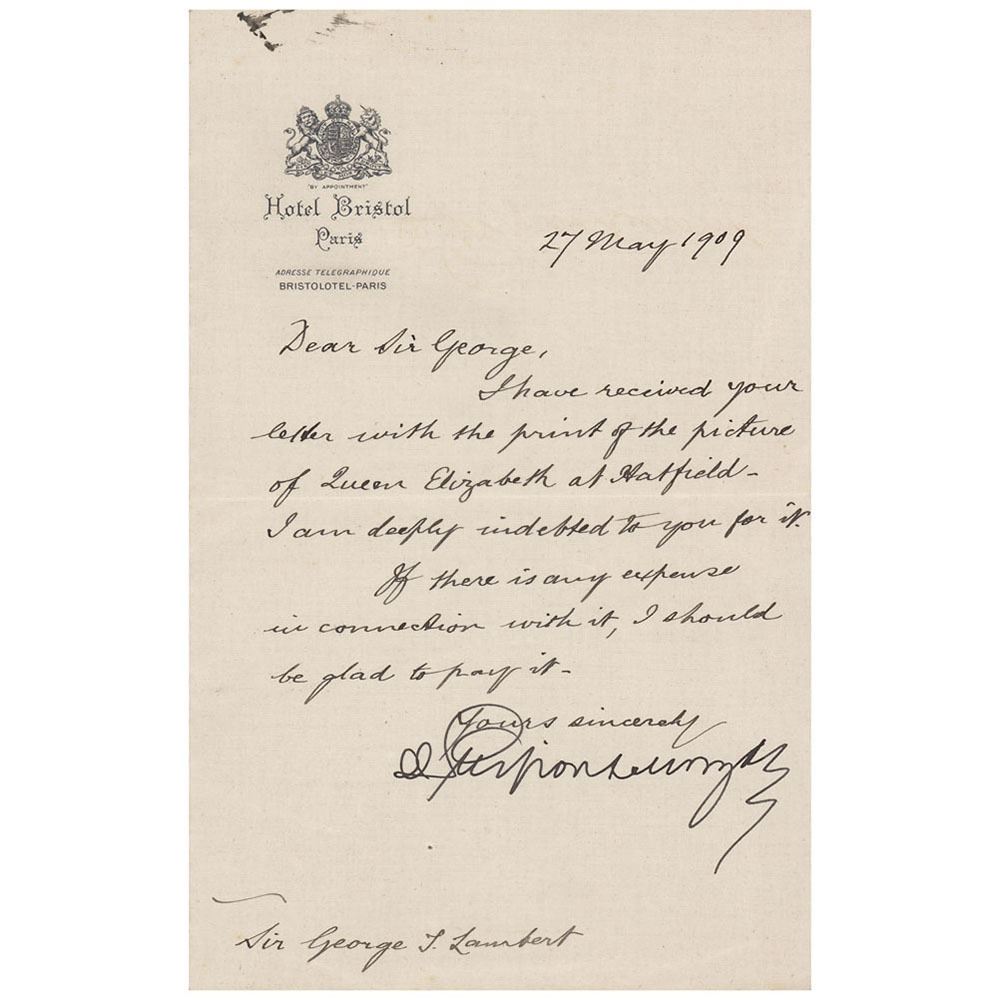 "BY APPOINTMENT"
Hotel Bristol
Paris
ADRESSE TELEGRAPHIQUE
BRISTOLOTEL-PARIS
27 May 1909
Dear Sir George,
I have received your
letter with the print of the picture
of Queen Elizabeth at Hatfield-
I am deeply indebted to you for it.
If there is any expense
in connection with it, I should
be glad to pay it-
Yours sincerely
J. Pierpont Morgan
Sir George T. Lambert